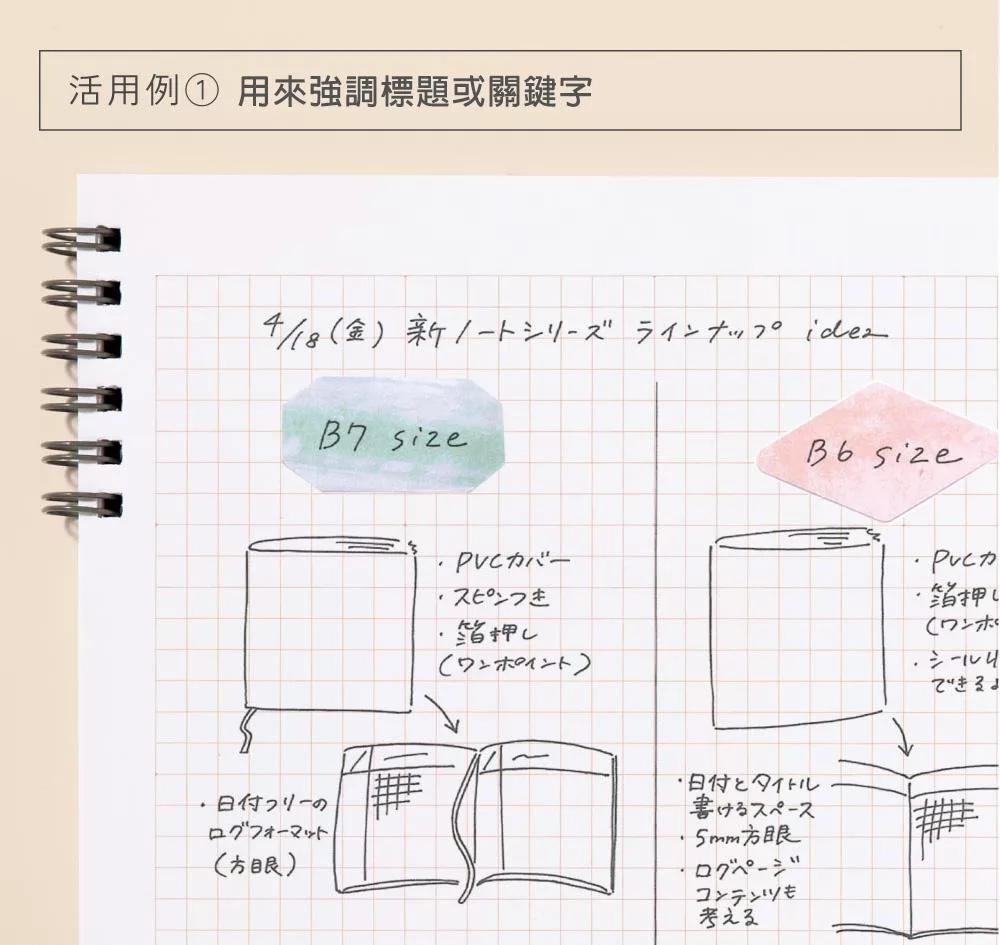 活用例① 用來強調標題或關鍵字
4/18(金) 新ノートシリーズ ラインナップ idea
B7 size
・PVCカバー
・スピンつき
・箔押し
(ワンポイント)
・日付フリーの
ログフォーマット
(方眼)
B6 size
・PVCカ
・箔押し
(ワンポ
・シール
できるよ
・日付とタイトル
書けるスペース
・5mm方眼
・ログページ
コンテンツも
考える